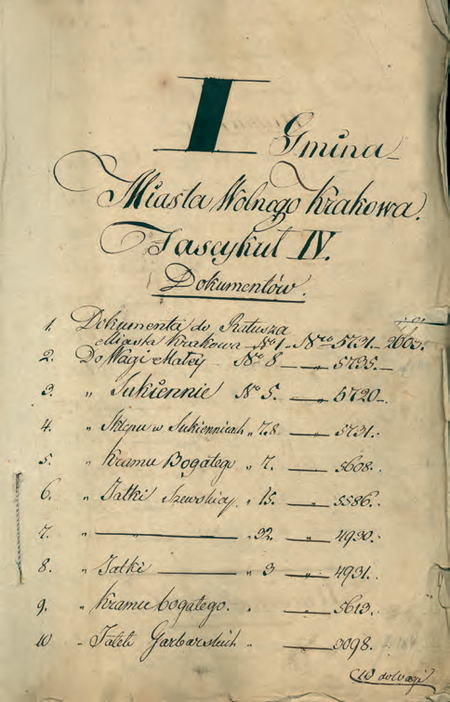 I Gmina
Miasta Wolnego Krakowa.
Fascykuł IV.
Dokumentów.
1. Dokumenta do Ratusza
Miasta Krakowa No 1 - Nro 5731.
2. Do Wagi Małey No 8 — „ — 5735.—
3. „ Sukiennic No 5. — „ — 5720.—
4. „ Sklepu w Sukiennicach „ 78 — „ — 5731.
5. „ Kramu Bogatego „ 7. — „ — 5608.
6. „ Jatki Szewskiey „ 15. — „ — 5586.
7. „ ——— „ 32. — „ — 4930.
8. „ Jatki ——— „ 3 — „ — 4931.
9. „ Kramu bogatego. „ — „ — 5613.
10 „ Jatek Garbarskich „ — „ — 5098.